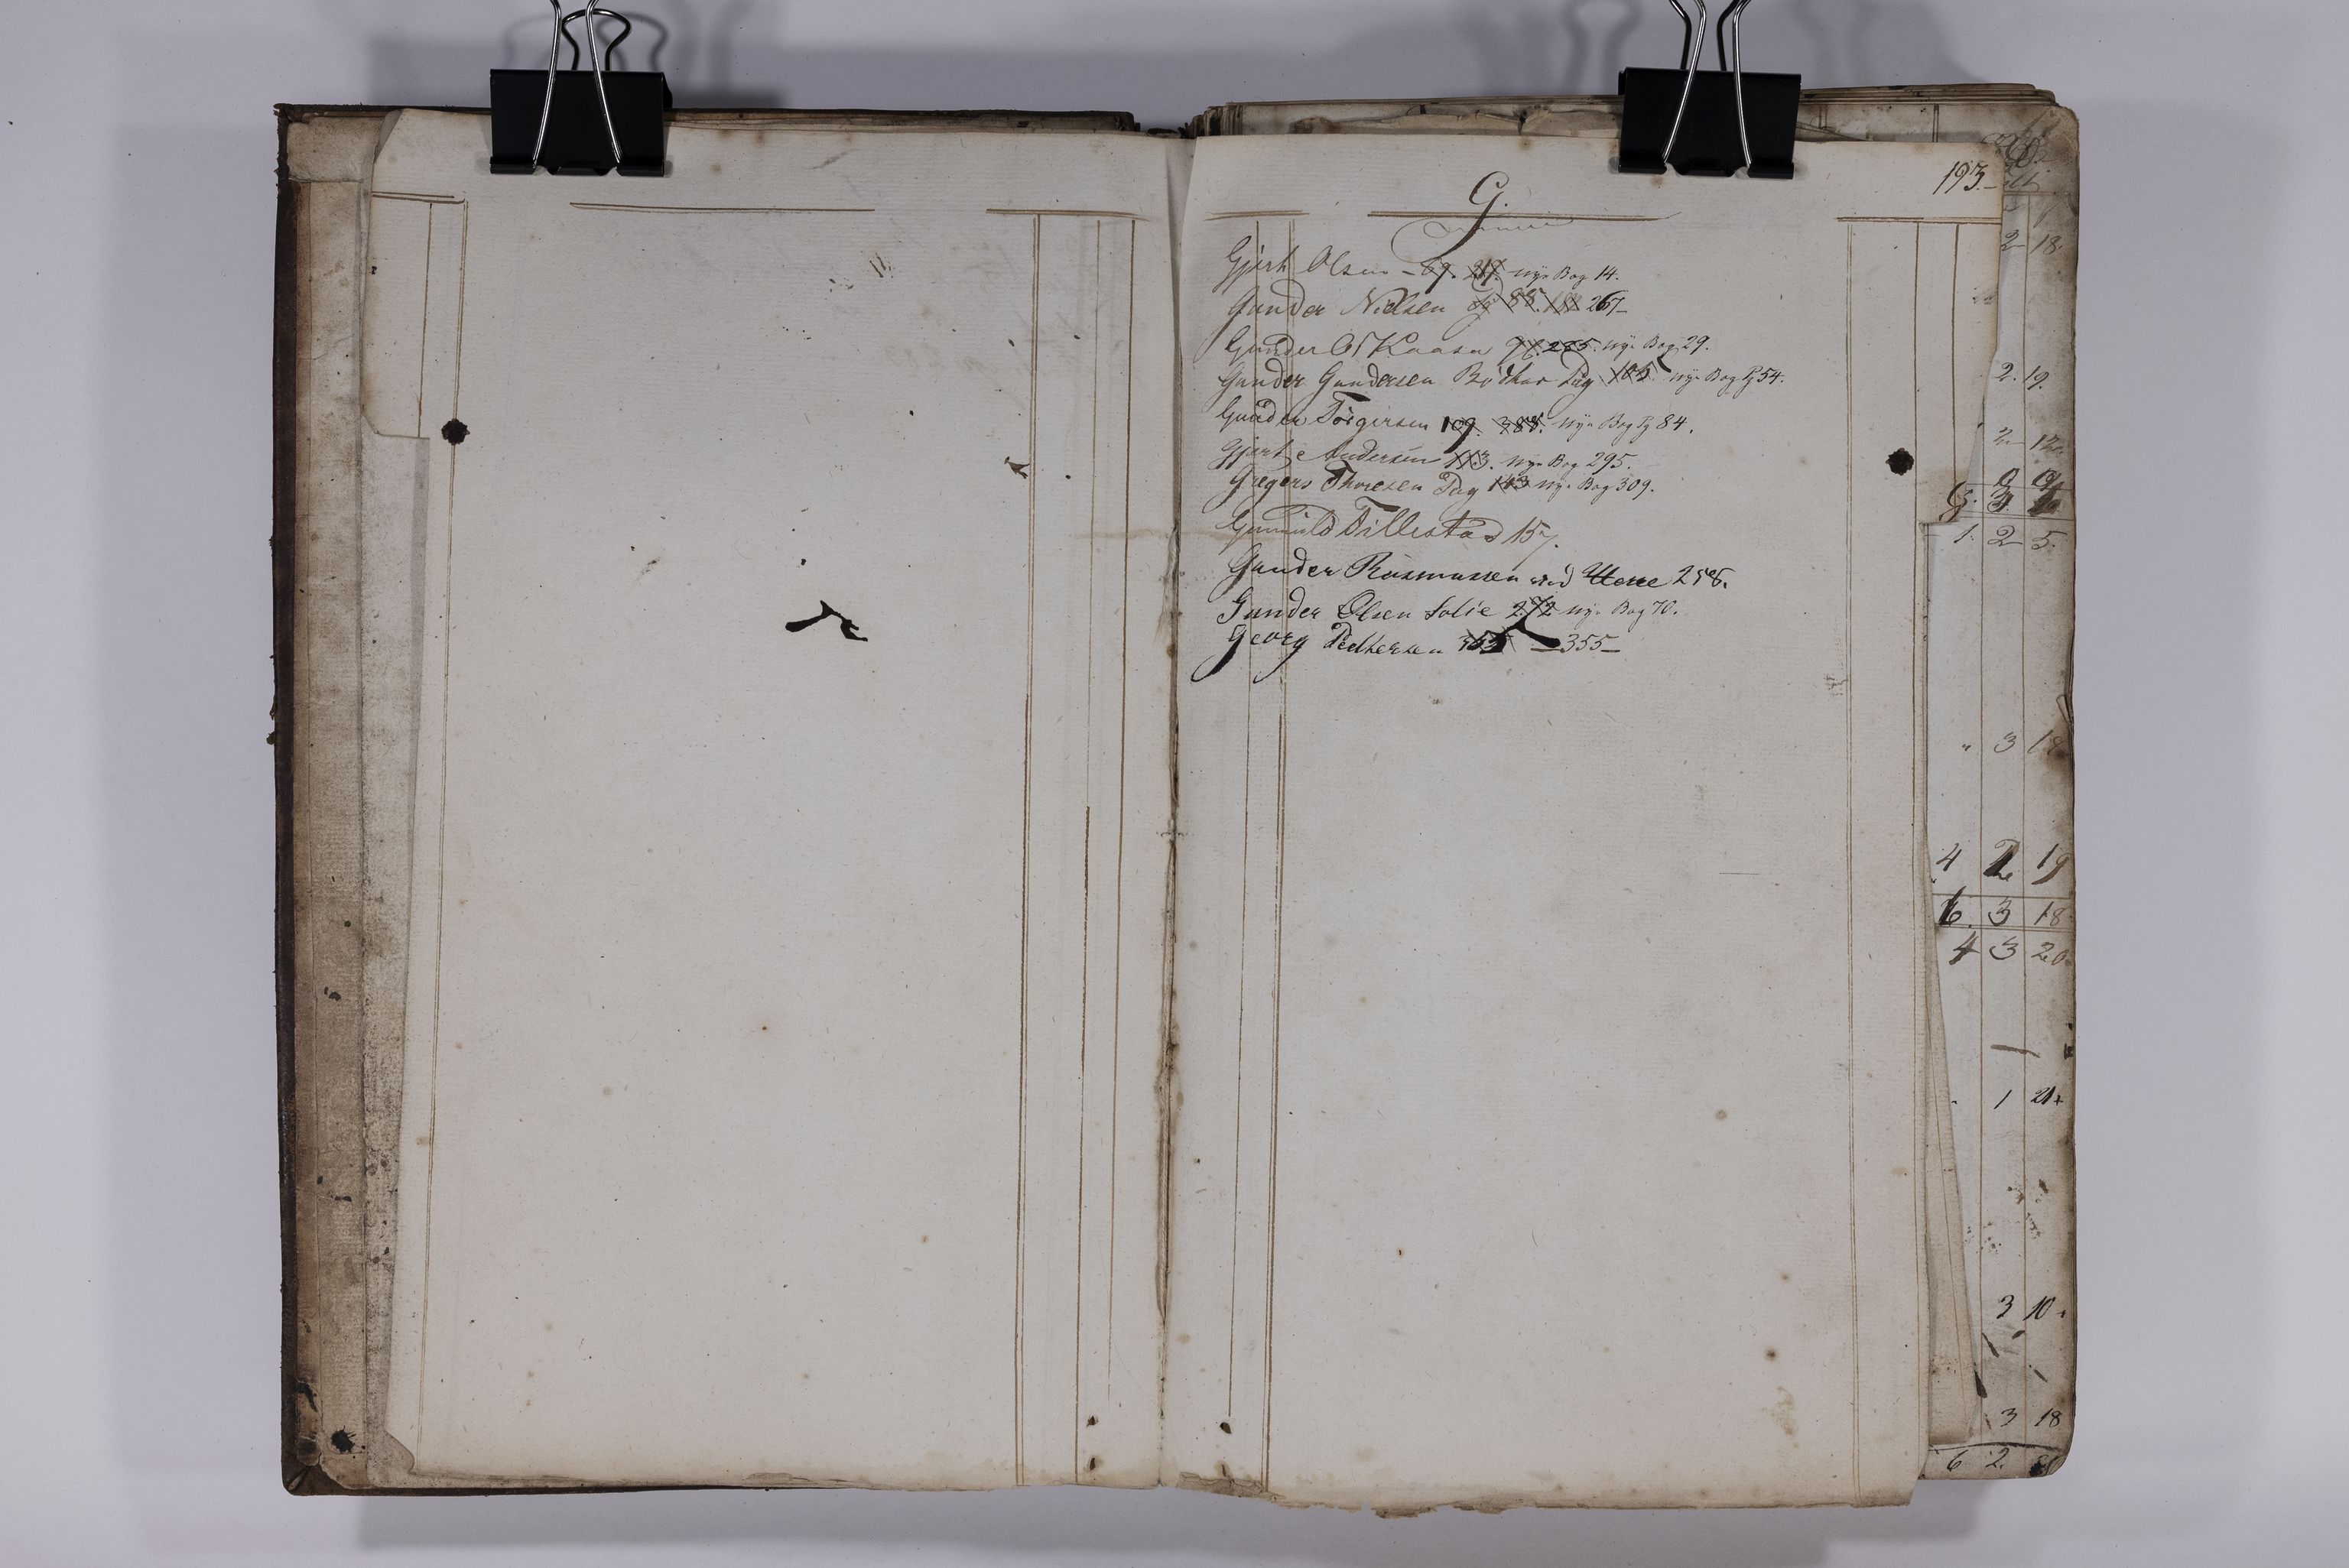 193.
G.
Gjert Olsen - 69. 217. nye Bog 14.
Gunder Nielsen Pg 88. 181 267
Gunder Ol Kaasa 96. 285. nye Bog 29.
Gunder Gundersen Bödker Pag 105 nye Bog Pg 54.
Gunder Torgirsen 109. 388. nye Bog Pg 84.
Gjert Andersen 113. nye Bog 295.
Gregers Thoresen Pag 143 nye Bog 309.
Gunnuld Tillestad 157.
Gunder Rasmussen ved 258.
Gunder Olsen Solie 272 nye Bog 70.
Georg Pedhersen 355 355
2 18.
2. 19.
2 12
1. 2 5.
3 18
4 2 19
6. 3 18
4 3 20
1 21
3 10
3 18
6 2.